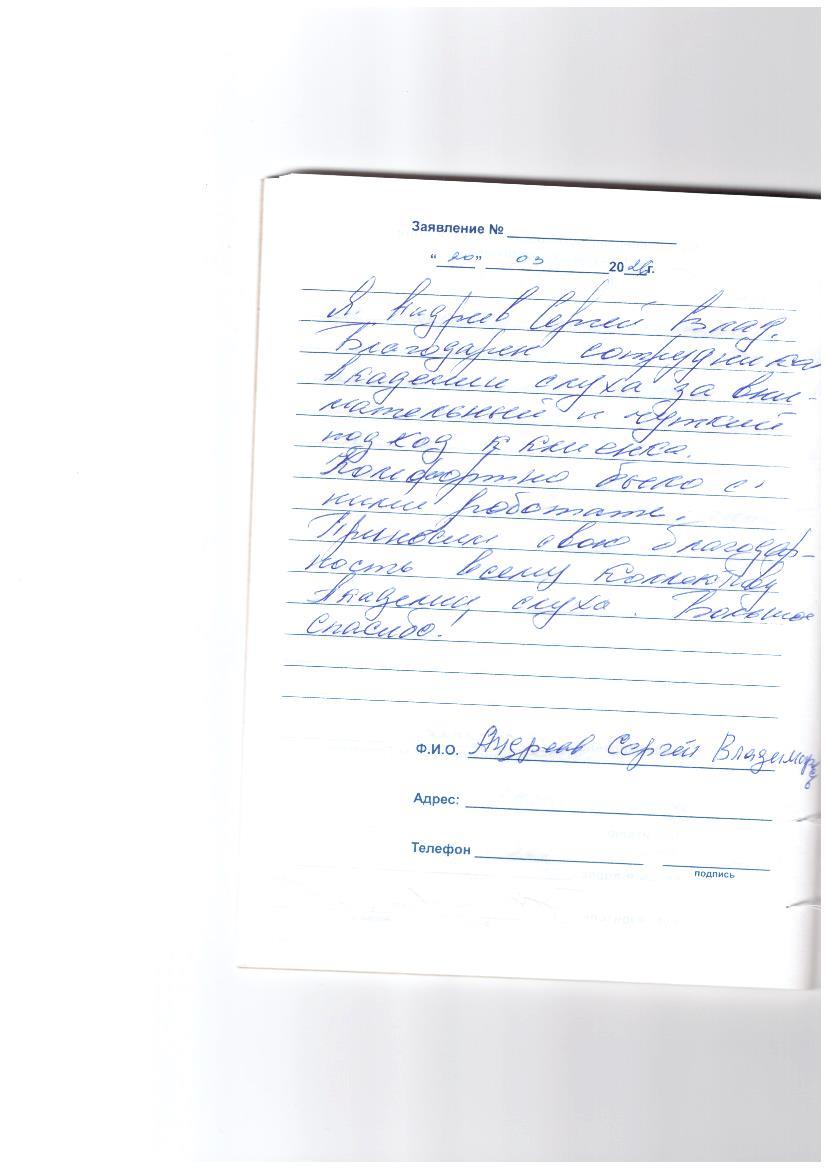 Заявление №
“20” 03 2026г.
Я. Андреев Сергей Влад.
Благодарен сотрудника
Академии слуха за вни-
мательный и чуткий
подход к клиенка.
Комфортно было с
ними работать.
Приносим свою благодар-
ность всему коллективу
Академии слуха. Большое
спасибо.
Ф.И.О. Андреев Сергей Владимирович
Адрес:
Телефон
подпись